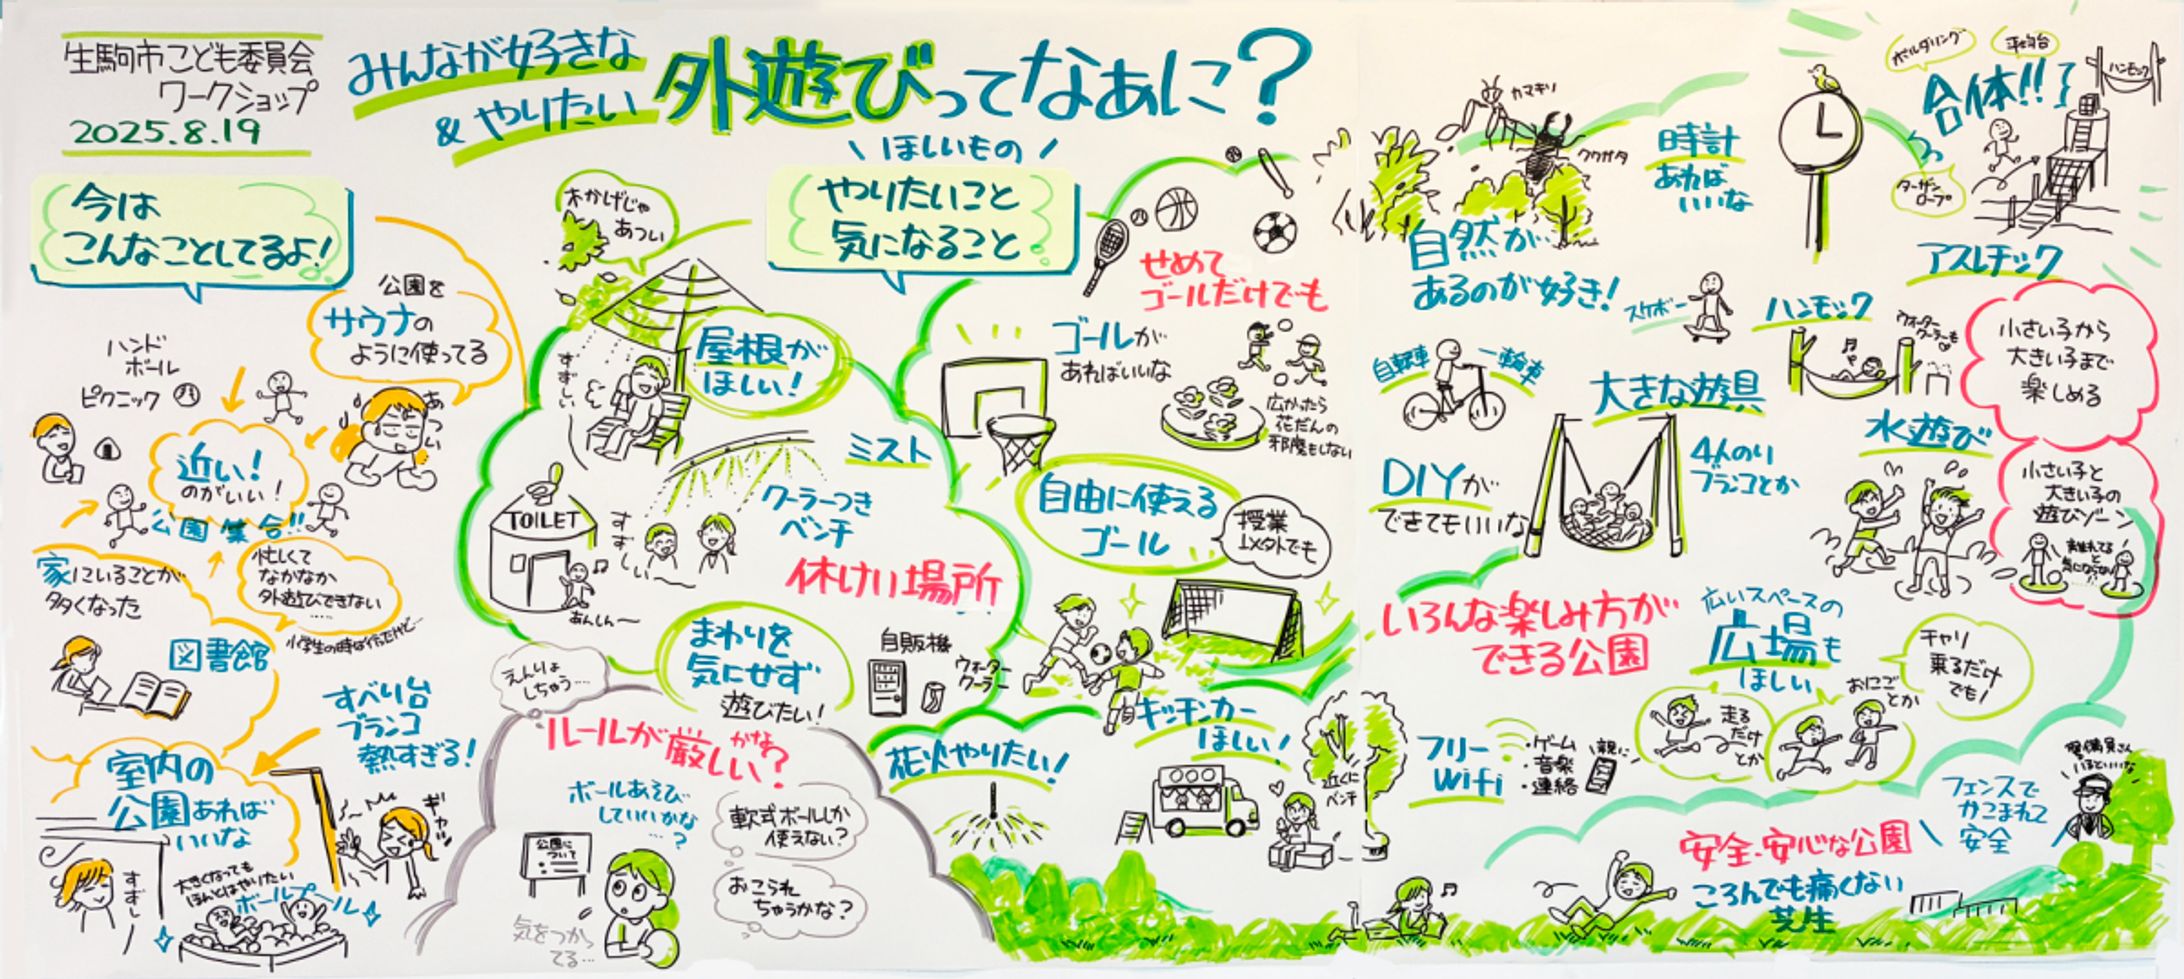 生駒市こども委員会
ワークショップ
2025.8.19
みんなが好きな
& やりたい
外遊びってなぁに?
今は
こんなことしてるよ!
公園を
サウナの
ように使ってる
ハンド
ボール
ピクニック
あつい
近い!
のがいい!
公園集合!!
家にいることが
多くなった
忙しくて
なかなか
外遊びできない
……
小学生の時は行けたけど…
図書館
すべり台
ブランコ
熱すぎる!
ギャッ
室内の
公園あれば
いいな
すずしー
大きくなっても
ほんとはやりたい
ボールプール
\ ほしいもの /
やりたいこと
気になること
木かげじゃ
あつい
屋根が
ほしい!
すずしい
ミスト
クーラーつき
ベンチ
TOILET
すずしぃ〜
あんしん〜
休けい場所
まわりを
気にせず
遊びたい!
自販機
ウォーター
クーラー
えんりょ
しちゃう…
ルールが厳しいかな?
ボールあそび
していいかな
…?
公園に
ついて
気をつかっ
てる…
軟式ボールしか
使えない?
おこられ
ちゃうかな?
せめて
ゴールだけでも
ゴールが
あればいいな
広かったら
花だんの
邪魔もしない
自由に使える
ゴール
授業
以外でも
花火やりたい!
キッチンカー
ほしい!
近くに
ベンチ
カマキリ
クワガタ
自然が
あるのが好き!
時計
あれば
いいな
ボルダリング
平均台
合体!!
ハンモック
ターザン
ロープ
アスレチック
スケボー
自転車
一輪車
ハンモック
ウォーター
クーラーも
大きな遊具
4人のり
ブランコとか
水遊び
DIYが
できてもいいな
小さい子から
大きい子まで
楽しめる
小さい子と
大きい子の
遊びゾーン
離れてる
と
気にならない
いろんな楽しみ方が
できる公園
広いスペースの
広場も
ほしい
チャリ
乗るだけ
でも!
走る
だけ
とか
おにご
とか
フリー
Wifi
・ゲーム
・音楽
・連絡
親に
安全・安心な公園
ころんでも痛くない
芝生
フェンスで
かこまれて
安全
警備員さん
いるといいな